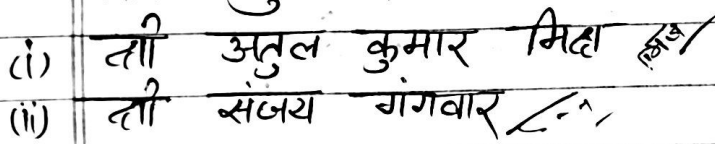 (i) श्री अतुल कुमार मिश्रा
(ii) श्री संजय गंगवार